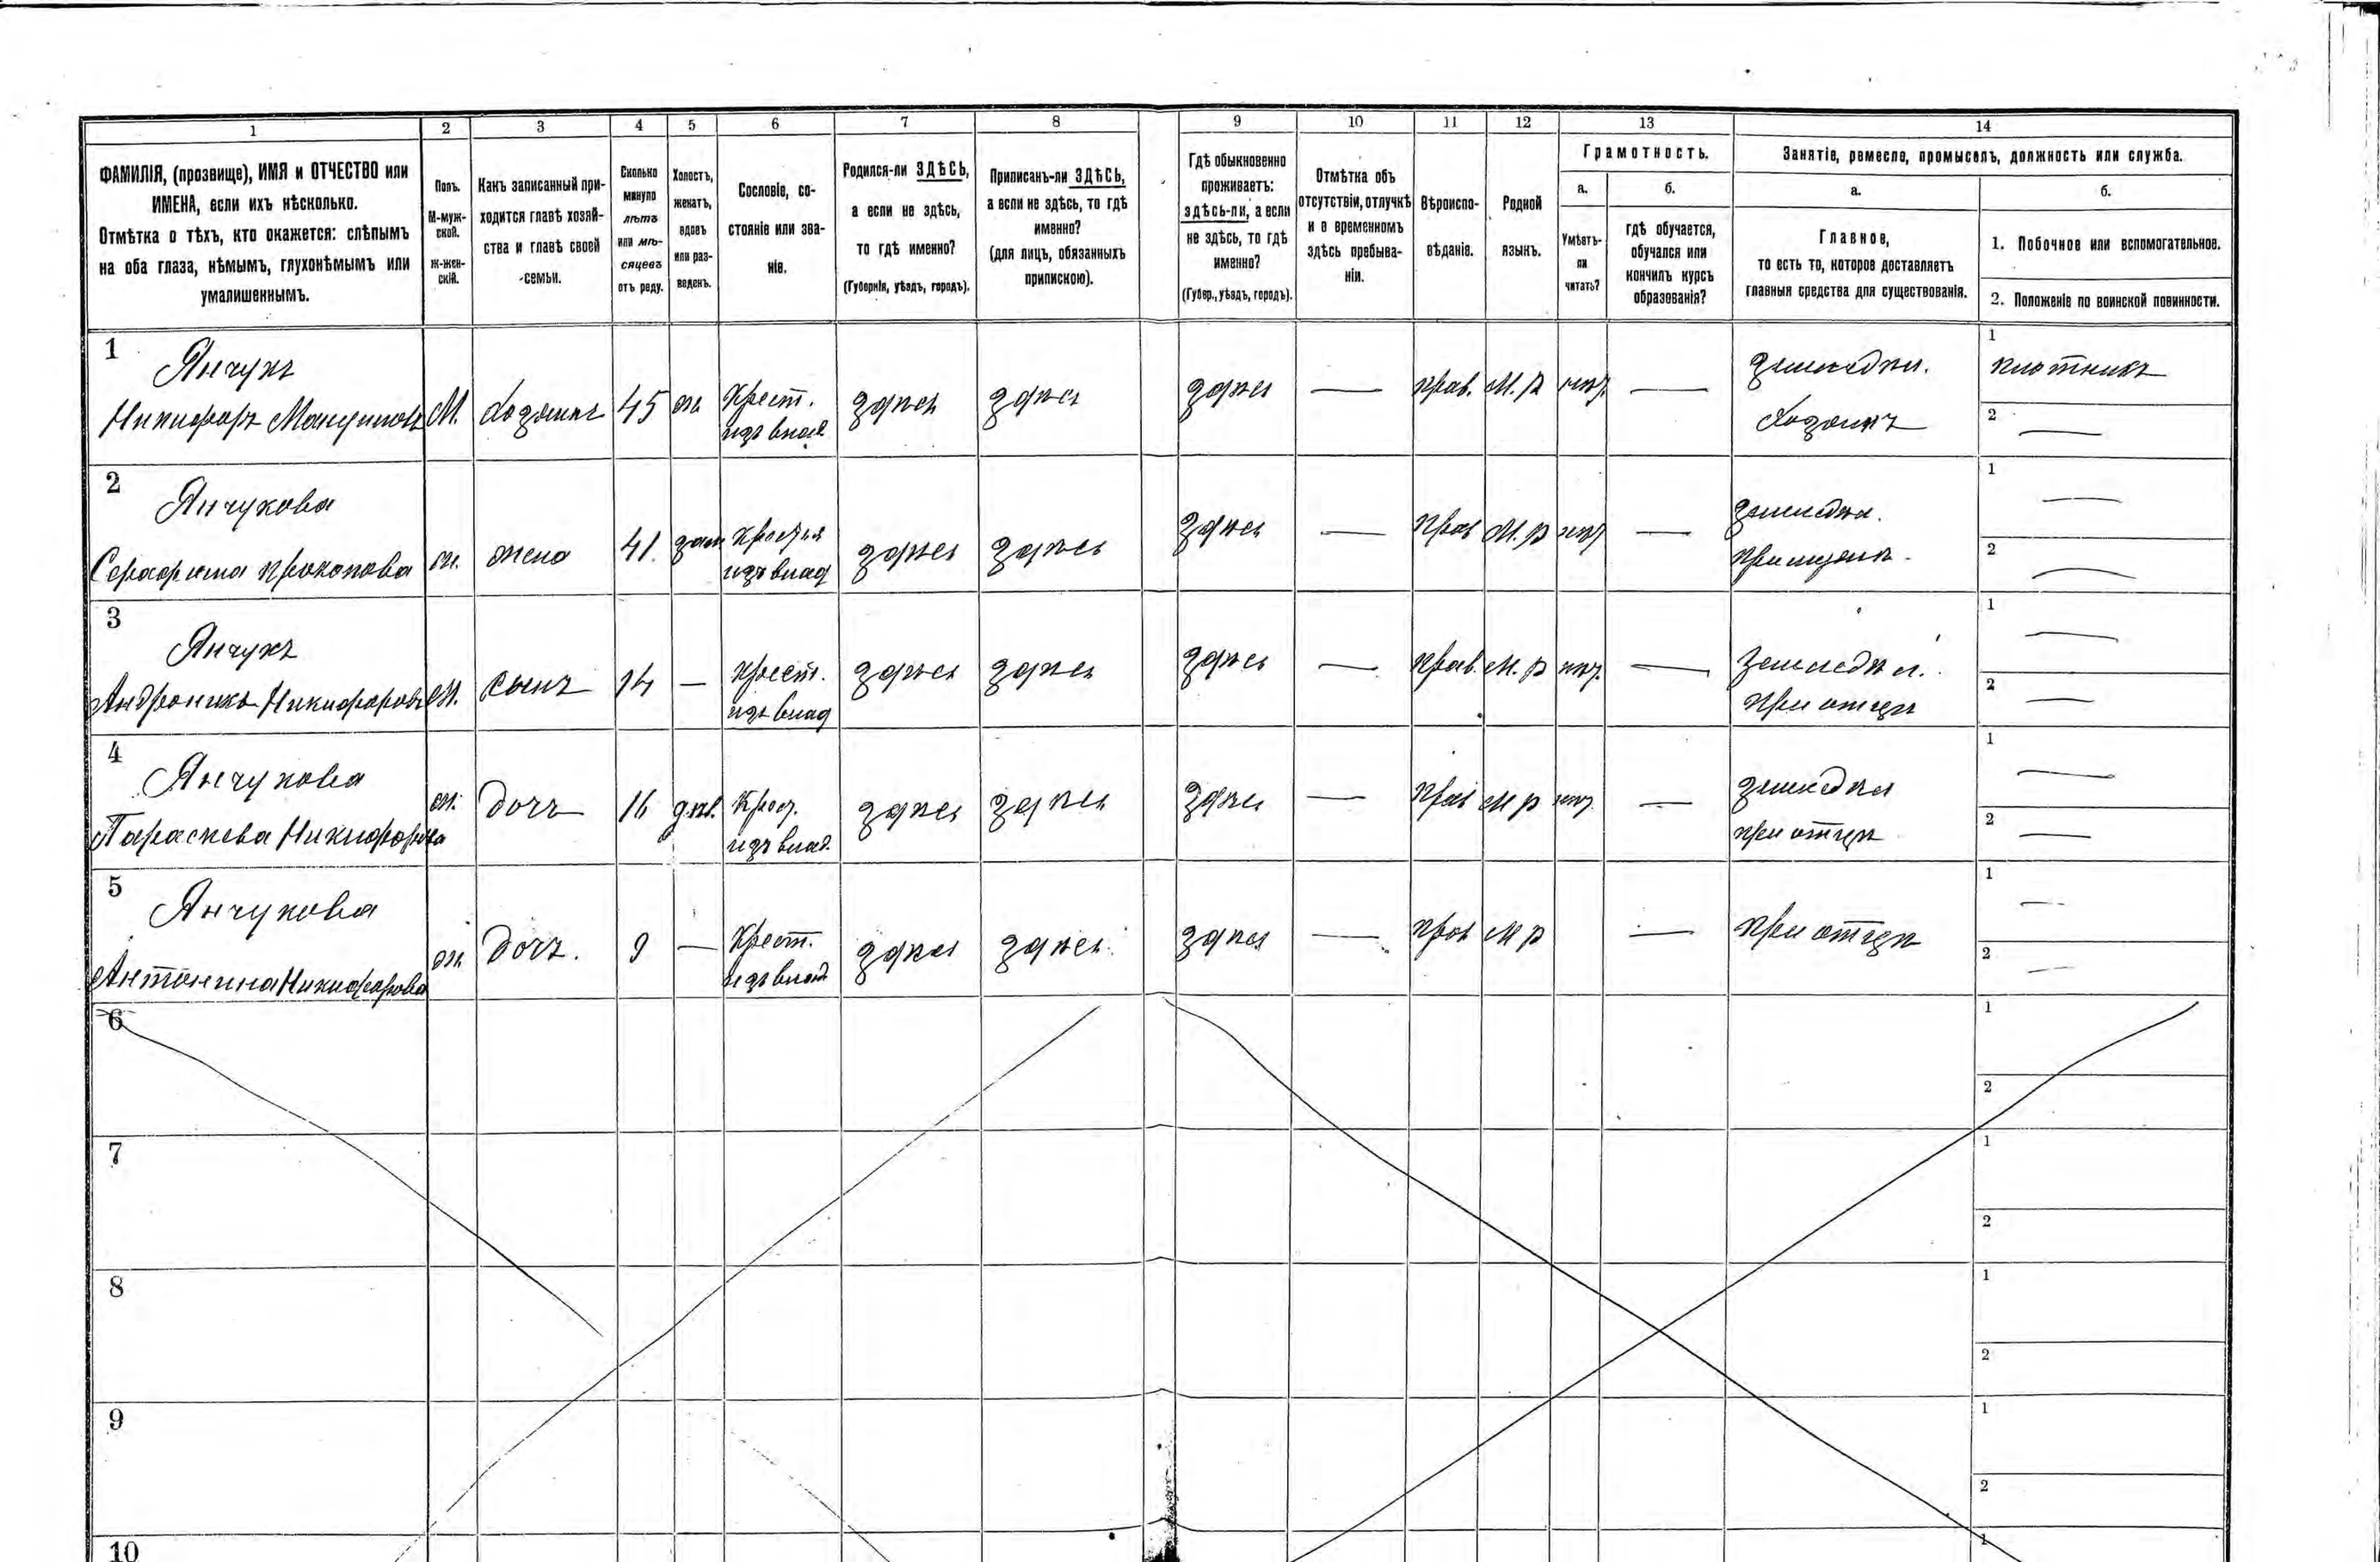 1 2 3 4 5 6 7 8 9 10 11 12 13 14
ФАМИЛІЯ, (прозвище), ИМЯ и ОТЧЕСТВО или
ИМЕНА, если ихъ нѣсколько.
Отмѣтка о тѣхъ, кто окажется: слѣпымъ
на оба глаза, нѣмымъ, глухонѣмымъ или
умалишеннымъ.
Полъ.
М-муж-
ской.
Ж-жен-
скій.
Какъ записанный при-
ходится главѣ хозяй-
ства и главѣ своей
семьи.
Сколько
минуло
лѣтъ
или мѣ-
сяцевъ
отъ роду.
Холостъ,
женатъ,
вдовъ
или раз-
веденъ.
Сословіе, со-
стояніе или зва-
ніе.
Родился-ли ЗДѢСЬ,
а если не здѣсь,
то гдѣ именно?
(Губернія, уѣздъ, городъ).
Приписанъ-ли ЗДѢСЬ,
а если не здѣсь, то гдѣ
именно?
(для лицъ, обязанныхъ
припискою).
Гдѣ обыкновенно
проживаетъ:
здѣсь-ли, а если
не здѣсь, то гдѣ
именно?
(Губер., уѣздъ, городъ).
Отмѣтка объ
отсутствіи, отлучкѣ
и о временномъ
здѣсь пребыва-
ніи.
Вѣроиспо-
вѣданіе.
Родной
языкъ.
Грамотность.
а.
Умѣетъ-
ли
читать?
б.
гдѣ обучается,
обучался или
кончилъ курсъ
образованія?
Занятіе, ремесло, промыселъ, должность или служба.
а.
Главное,
то есть то, которое доставляетъ
главныя средства для существованія.
б.
1. Побочное или вспомогательное.
2. Положеніе по воинской повинности.
1 Янчукъ
Никифоръ М. Хозяинъ 45 ж Крест. здѣсь здѣсь здѣсь — прав. М. Р нѣт. — земледѣл. 1 плотникъ
изъ влад Хозяинъ 2 —
2 Янчукова
Серафима Прокопова ж. жена 41. зам здѣсь здѣсь здѣсь — прав М. р нѣт — земледѣл. 1 —
изъ влад 2 —
3 Янчукъ
Андроникъ Никифоровъ М. сынъ 14 — крест. здѣсь здѣсь здѣсь — прав. М. р нѣт. — земледѣл. 1 —
изъ влад при отцѣ 2 —
4 Янчукова
Параскева Никифорова ж. дочь 16 дѣв. здѣсь здѣсь здѣсь — прав М р нѣт — земледѣл 1 —
изъ влад. при отцѣ 2 —
5 Янчукова
Антонина Никифорова ж дочь. 9 — Крест. здѣсь здѣсь здѣсь — прав М р — при отцѣ 1 —
изъ влад 2 —
6 1
2
7 1
2
8 1
2
9 1
2
10 1